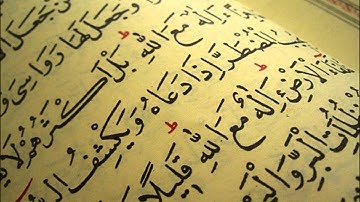 وَجَعَلَ لَهَا رَوَاسِيَ وَ
أَإِلَٰهٌ مَعَ اللَّهِ بَلْ أَكْثَرُهُمْ لَا
الْمُضْطَرَّ إِذَا دَعَاهُ وَيَكْشِفُ
الْأَرْضِ أَإِلَٰهٌ مَعَ اللَّهِ قَلِيلًا
الْبَرِّ